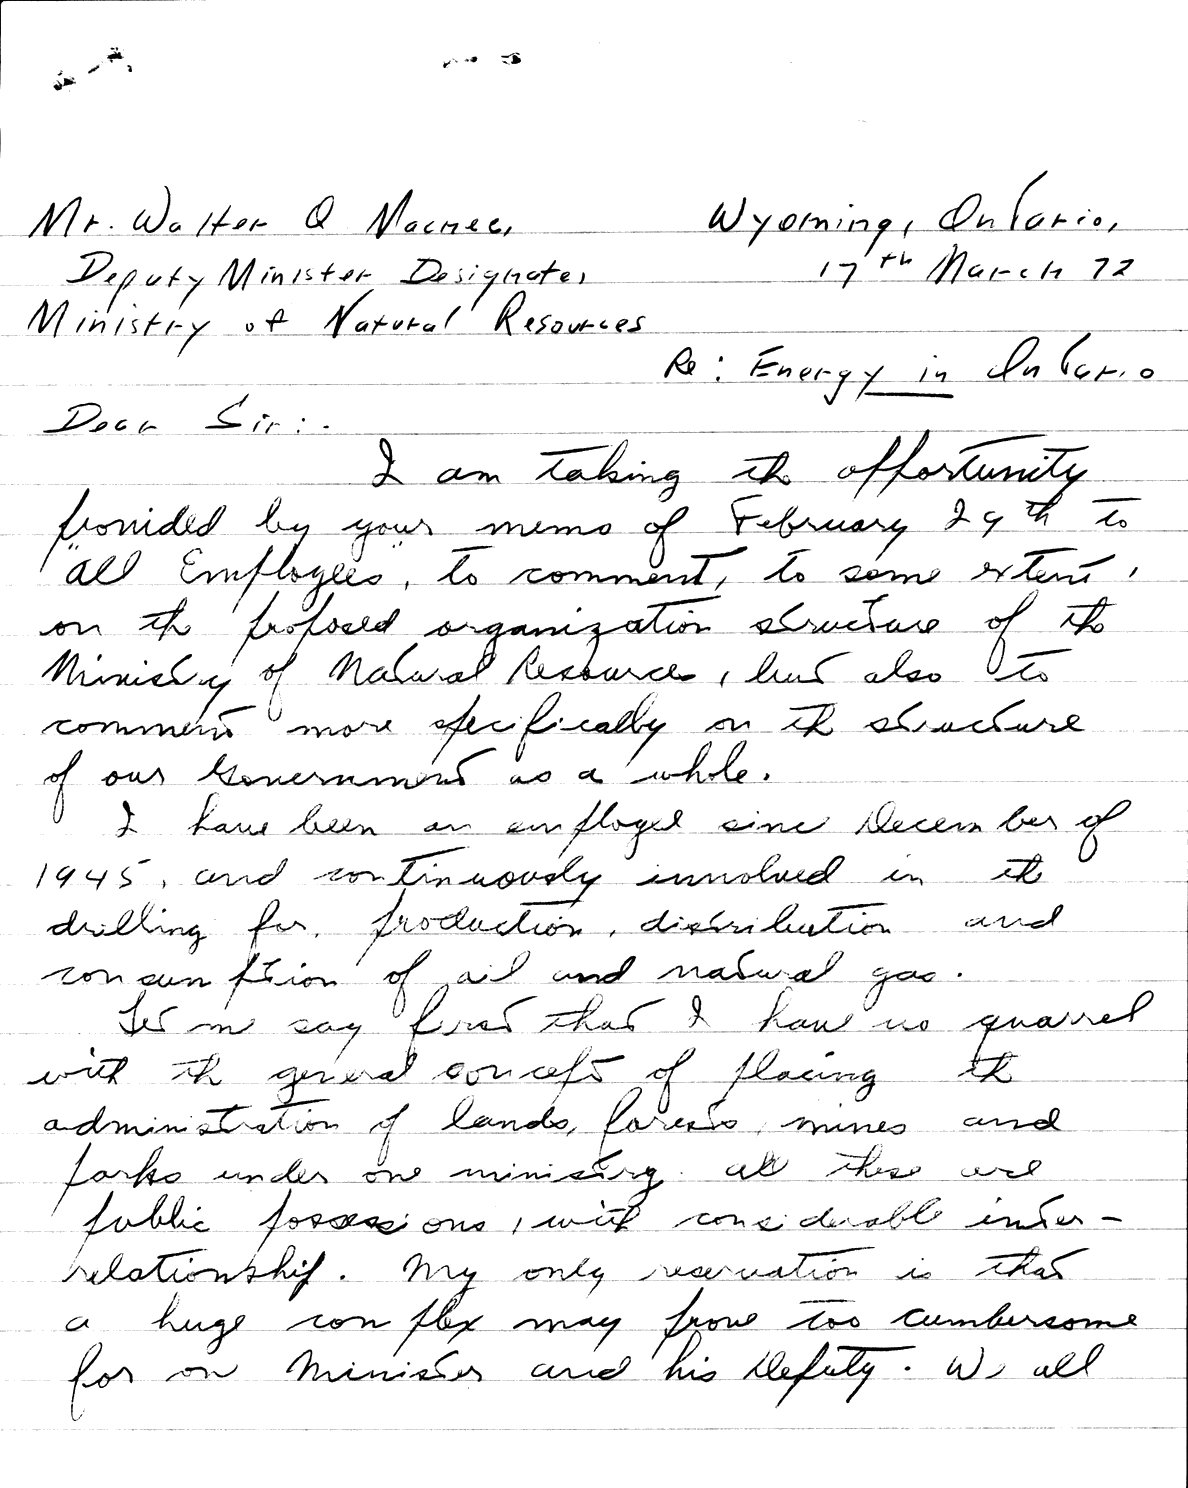 Mr. Walter Q Macnee,
Wyoming, Ontario,
Deputy Minister Designate,
17th March 72
Ministry of Natural Resources
Re: Energy in Ontario
Dear Sir:-
I am taking the opportunity
provided by your memo of February 29th to
"all Employees", to comment, to some extent,
on the proposed organization structure of the
Ministry of Natural Resources, but also to
comment more specifically on the structure
of our Government as a whole.
I have been an employee since December of
1945, and continuously involved in the
drilling for, production, distribution and
consumption of oil and natural gas.
Let me say first that I have no quarrel
with the general concept of placing the
administration of lands, forests, mines and
parks under one ministry. all these are
public possessions, with considerable inter-
relationship. My only reservation is that
a huge complex may prove too cumbersome
for one Minister and his Deputy. We all